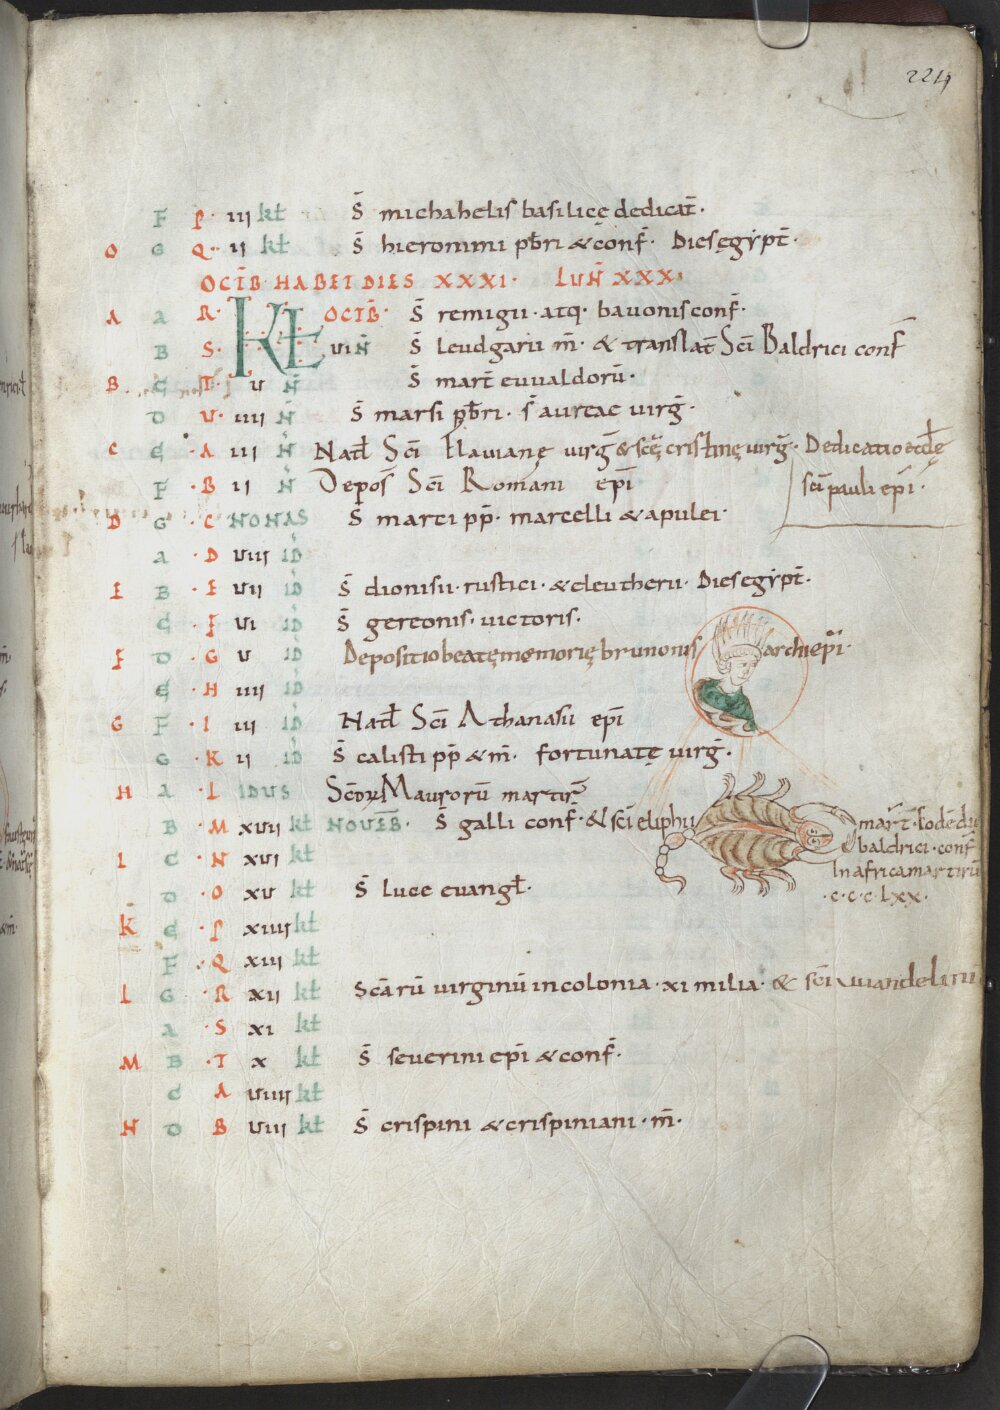 224
F P· III kł S̄ michahelis basilicę dedicat̄·
O G Q·· II kł S̄ hieronimi pb̄ri & conf̄· Dies ęgypt̄·
OCTB̄· HABET DIES XXXI· LUN̄ XXX·
A A R· KŁ OCTB̄· S̄ remigii· atq· bauonis conf̄·
B S· VI N̄ S̄ leudgarii m̄· & translat̄ Sc̄i Baldrici conf̄
B C T· V N̄ S̄ mart̄ euualdorū·
D V· IIII N̄ S̄ marsi pb̄ri· s̄ aureae uirḡ·
C E ·A III N̄ Natł Sc̄i Flauianę uirḡ & sc̄ę cristinę uirḡ· Dedicatio eccłę
F ·B II N̄ Depos̄ Sc̄i Romani ep̄i sc̄i pauli ep̄i·
D G ·C NONAS S̄ marci pp̄· marcelli & apulei·
A ·D VIII ID̄
E B ·E VII ID̄ S̄ dionisii· rustici· & eleutherii· Dies ęgypt̄·
C ·F VI ID̄ S̄ gereonis· uictoris·
F D ·G V ID̄ Depositio beatę memorię brunonis archiep̄i·
E ·H IIII ID̄
G F ·I III ID̄ Natł Sc̄i Athanasii ep̄i
G ·K II ID̄ S̄ calisti pp̄ & m̄· fortunatę uirḡ·
H A ·L IDUS Sc̄orum Maurorū martir̄
B ·M XVII kł NOUEB̄· S̄ galli conf̄· & sc̄i eliphii mar̄t·
I C ·N XVI kł baldrici· conf̄
In africa martirū
D ·O XV kł S̄ luce euangł·
·c·c·c·lxx·
K E ·P XIIII kł
F ·Q XIII kł
L G ·R XII kł Sc̄arū uirginū in colonia· xi milia· & sc̄i
A ·S XI kł
M B ·T X kł S̄ seuerini ep̄i & conf̄·
C A VIIII kł
N D B VIII kł S̄ crispini & crispiniani· m̄·